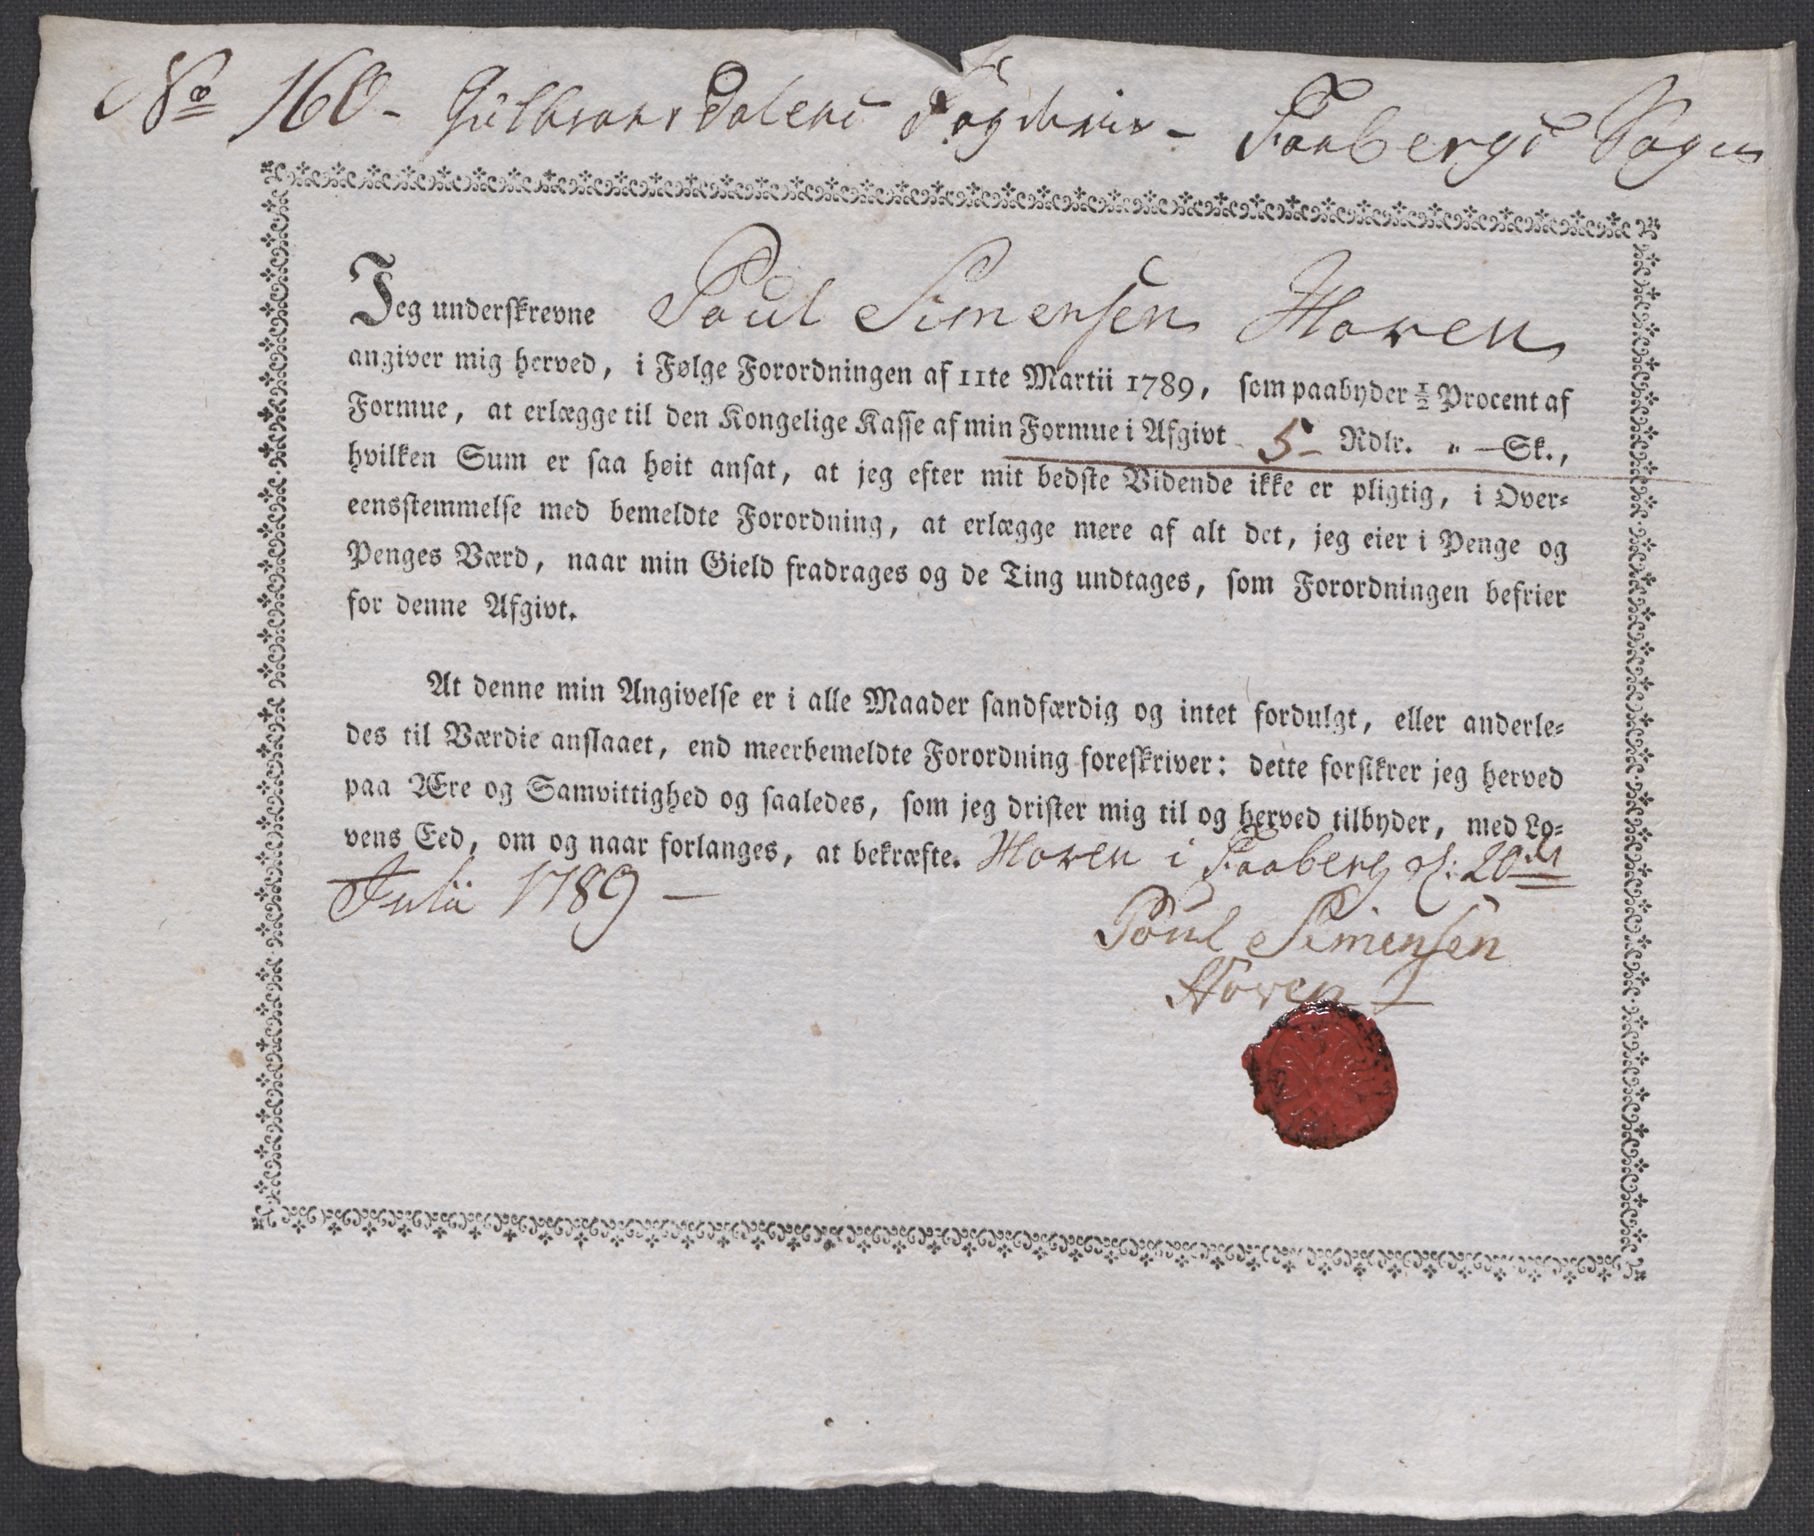 No 160 - Gulbrandsdalens Fogderie - Faabergs Sogn
Jeg underskrevne Poul Simensen Hoven
angiver mig herved, i Følge Forordningen af 11te Martii 1789, som paabyder ½ Procent af
Formue, at erlægge til den Kongelige Kasse af min Formue i Afgivt 5 - Rdlr. " - Sk.,
hvilken Sum er saa høit ansat, at jeg efter mit bedste Vidende ikke er pligtig, i Over=
eensstemmelse med bemeldte Forordning, at erlægge mere af alt det, jeg eier i Penge og
Penges Værd, naar min Gield fradrages og de Ting undtages, som Forordningen befrier
for denne Afgivt.
At denne min Angivelse er i alle Maader sandfærdig og intet fordulgt, eller anderle=
des til Værdie anslaaet, end meerbemeldte Forordning foreskriver: dette forsikrer jeg herved
paa Ære og Samvittighed og saaledes, som jeg drister mig til og herved tilbyder, med Lo=
vens Eed, om og naar forlanges, at bekræfte. Hoven i Faaberg d: 20de
Julii 1789 -
Poul Simensen
Hoven